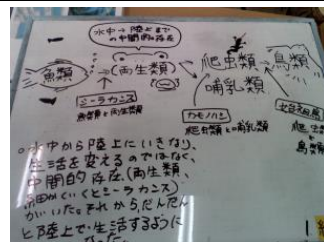 水中→陸上までの中間的存在
魚類 → (両生類) → 爬虫類 → 鳥類
哺乳類
シーラカンス
魚類と両生類
カモノハシ
爬虫類と哺乳類
爬虫類と鳥類
○水中から陸上にいきなり、
生活を変えるのではなく、
中間的存在(両生類、
シーラカンス)
がいた。それからだんだん
と陸上で生活するように
なった。